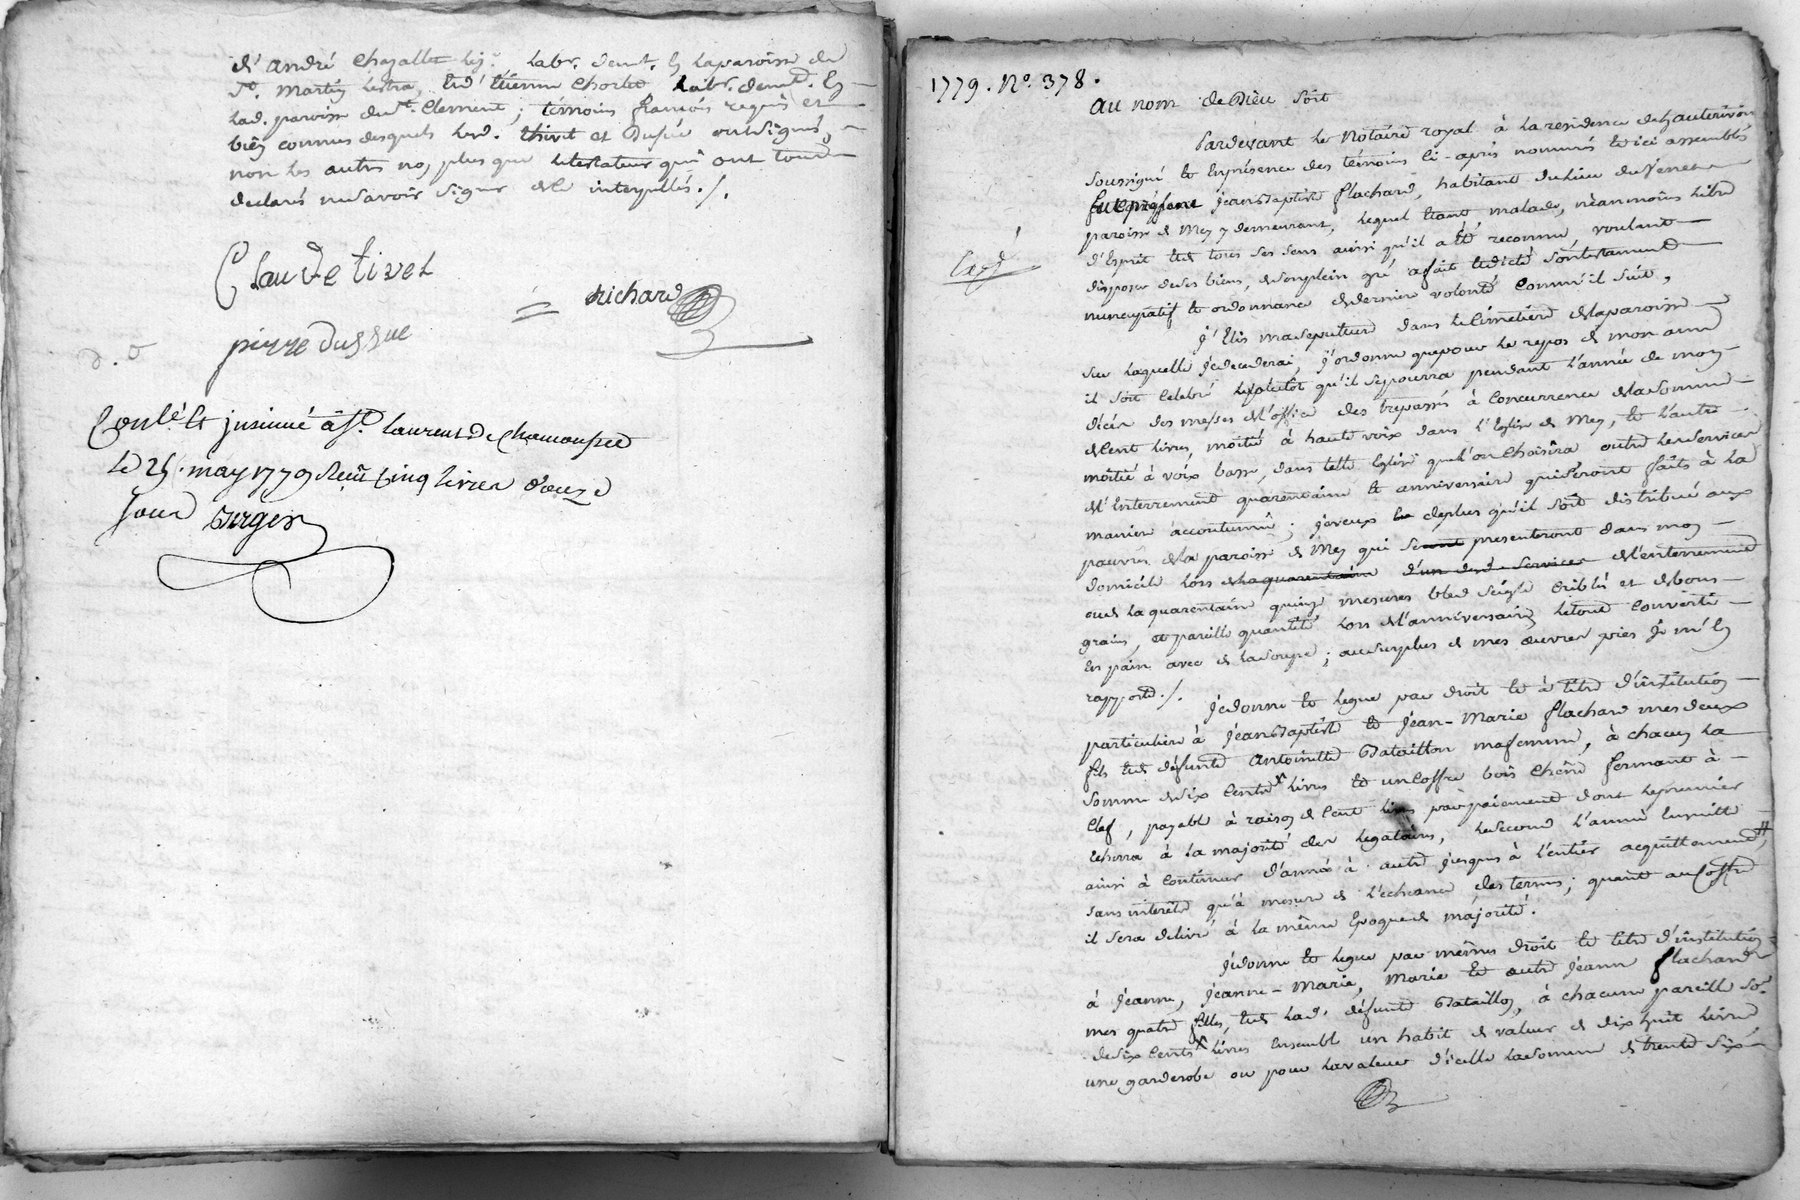 d'andré Chazallet lég. labr. demt. en la paroisse de
St. Martin Lestra, et d'étienne Chorliet, labr. demt. en
lad. paroisse de St. Clement; témoins françois requis et
bien connus desquels led. thivet et Dussuc ont signés,
non les autres non plus que le testateur qui ont tous
declarés ne savoir signer de ce interpellés./.
Claude tivet
richard
pierre dussuc
Conlé. et insinué à St. Laurent de Chamousset
le 25. may 1779 Reçu cinq livres douze
sous Berger
1779. N°. 378.
au nom de Dieu soit
Pardevant le Notaire royal à la residence de hauterivoire
soussigné et en présence des témoins ci-après nommés et ici assemblés
fut présent jean Baptiste flachard, habitant du lieu du Venet
paroisse de Mey y demeurant, lequel étant malade, néanmoins libre
d'Esprit et de tous ses sens ainsi qu'il a été reconnu voulant
disposer de ses biens, de son plein gré a fait et dicté son testament
nuncupatif et ordonnance de derniere volonté comm'il suit,
j'élis ma sepulture dans le cimetiére de la paroisse
sur laquelle je decederai, j'ordonne que pour le repos de mon ame
il soit celebré le plutôt qu'il se pourra pendant l'année de mon
décés des messes de l'office des trepassés à concurrence de la somme
de cent livres, moitié à haute voix dans l'Eglise de Mey, et l'autre
moitié à voix basse, dans telle Eglise que l'on choisira outre les services
d'enterrement quarentaine et anniversaire qui seront faits à la
maniere accoutumée; je veux de plus qu'il soit distribué aux
pauvres de la paroisse de Mey qui se presenteront dans mon
domicile lors de la quarentaine d'un des services de l'enterrement
ou de la quarentaine quinze mesures bled seigle criblé et de bons
grains, et pareille quantité lors de l'anniversaire le tout converti
en pain avec de la soupe; au surplus de mes œuvres pies je m'en
rapporte./.
je donne et legue par droit et à titre d'institution
particuliere à jean Baptiste et jean-Marie flachard mes deux
fils et de défunte Antoinette Bataillon ma femme, à chacun la
somme de six cents livres et un coffre bois chêne fermant à
clef, payable à raison de cent livres par paiement dont le premier
echerra à la majorité des legataires, le second l'année ensuitte
ainsi à continuer d'année à autre jusques à l'entier acquittement,
sans interêts qu'à mesure de l'echeance des termes; quant au coffre
il sera delivré à la même Epoque de majorité.
je donne et legue par mêmes droit et titre d'institution
à jeanne, jeanne-Marie, Marie et autre jeanne flachard
mes quatre filles, et de lad. défunte Bataillon, à chacune pareille so.
de six cents livres ensemble un habit de valeur de dix huit livres
une garderobe ou pour la valeur d'icelle la somme de trente six